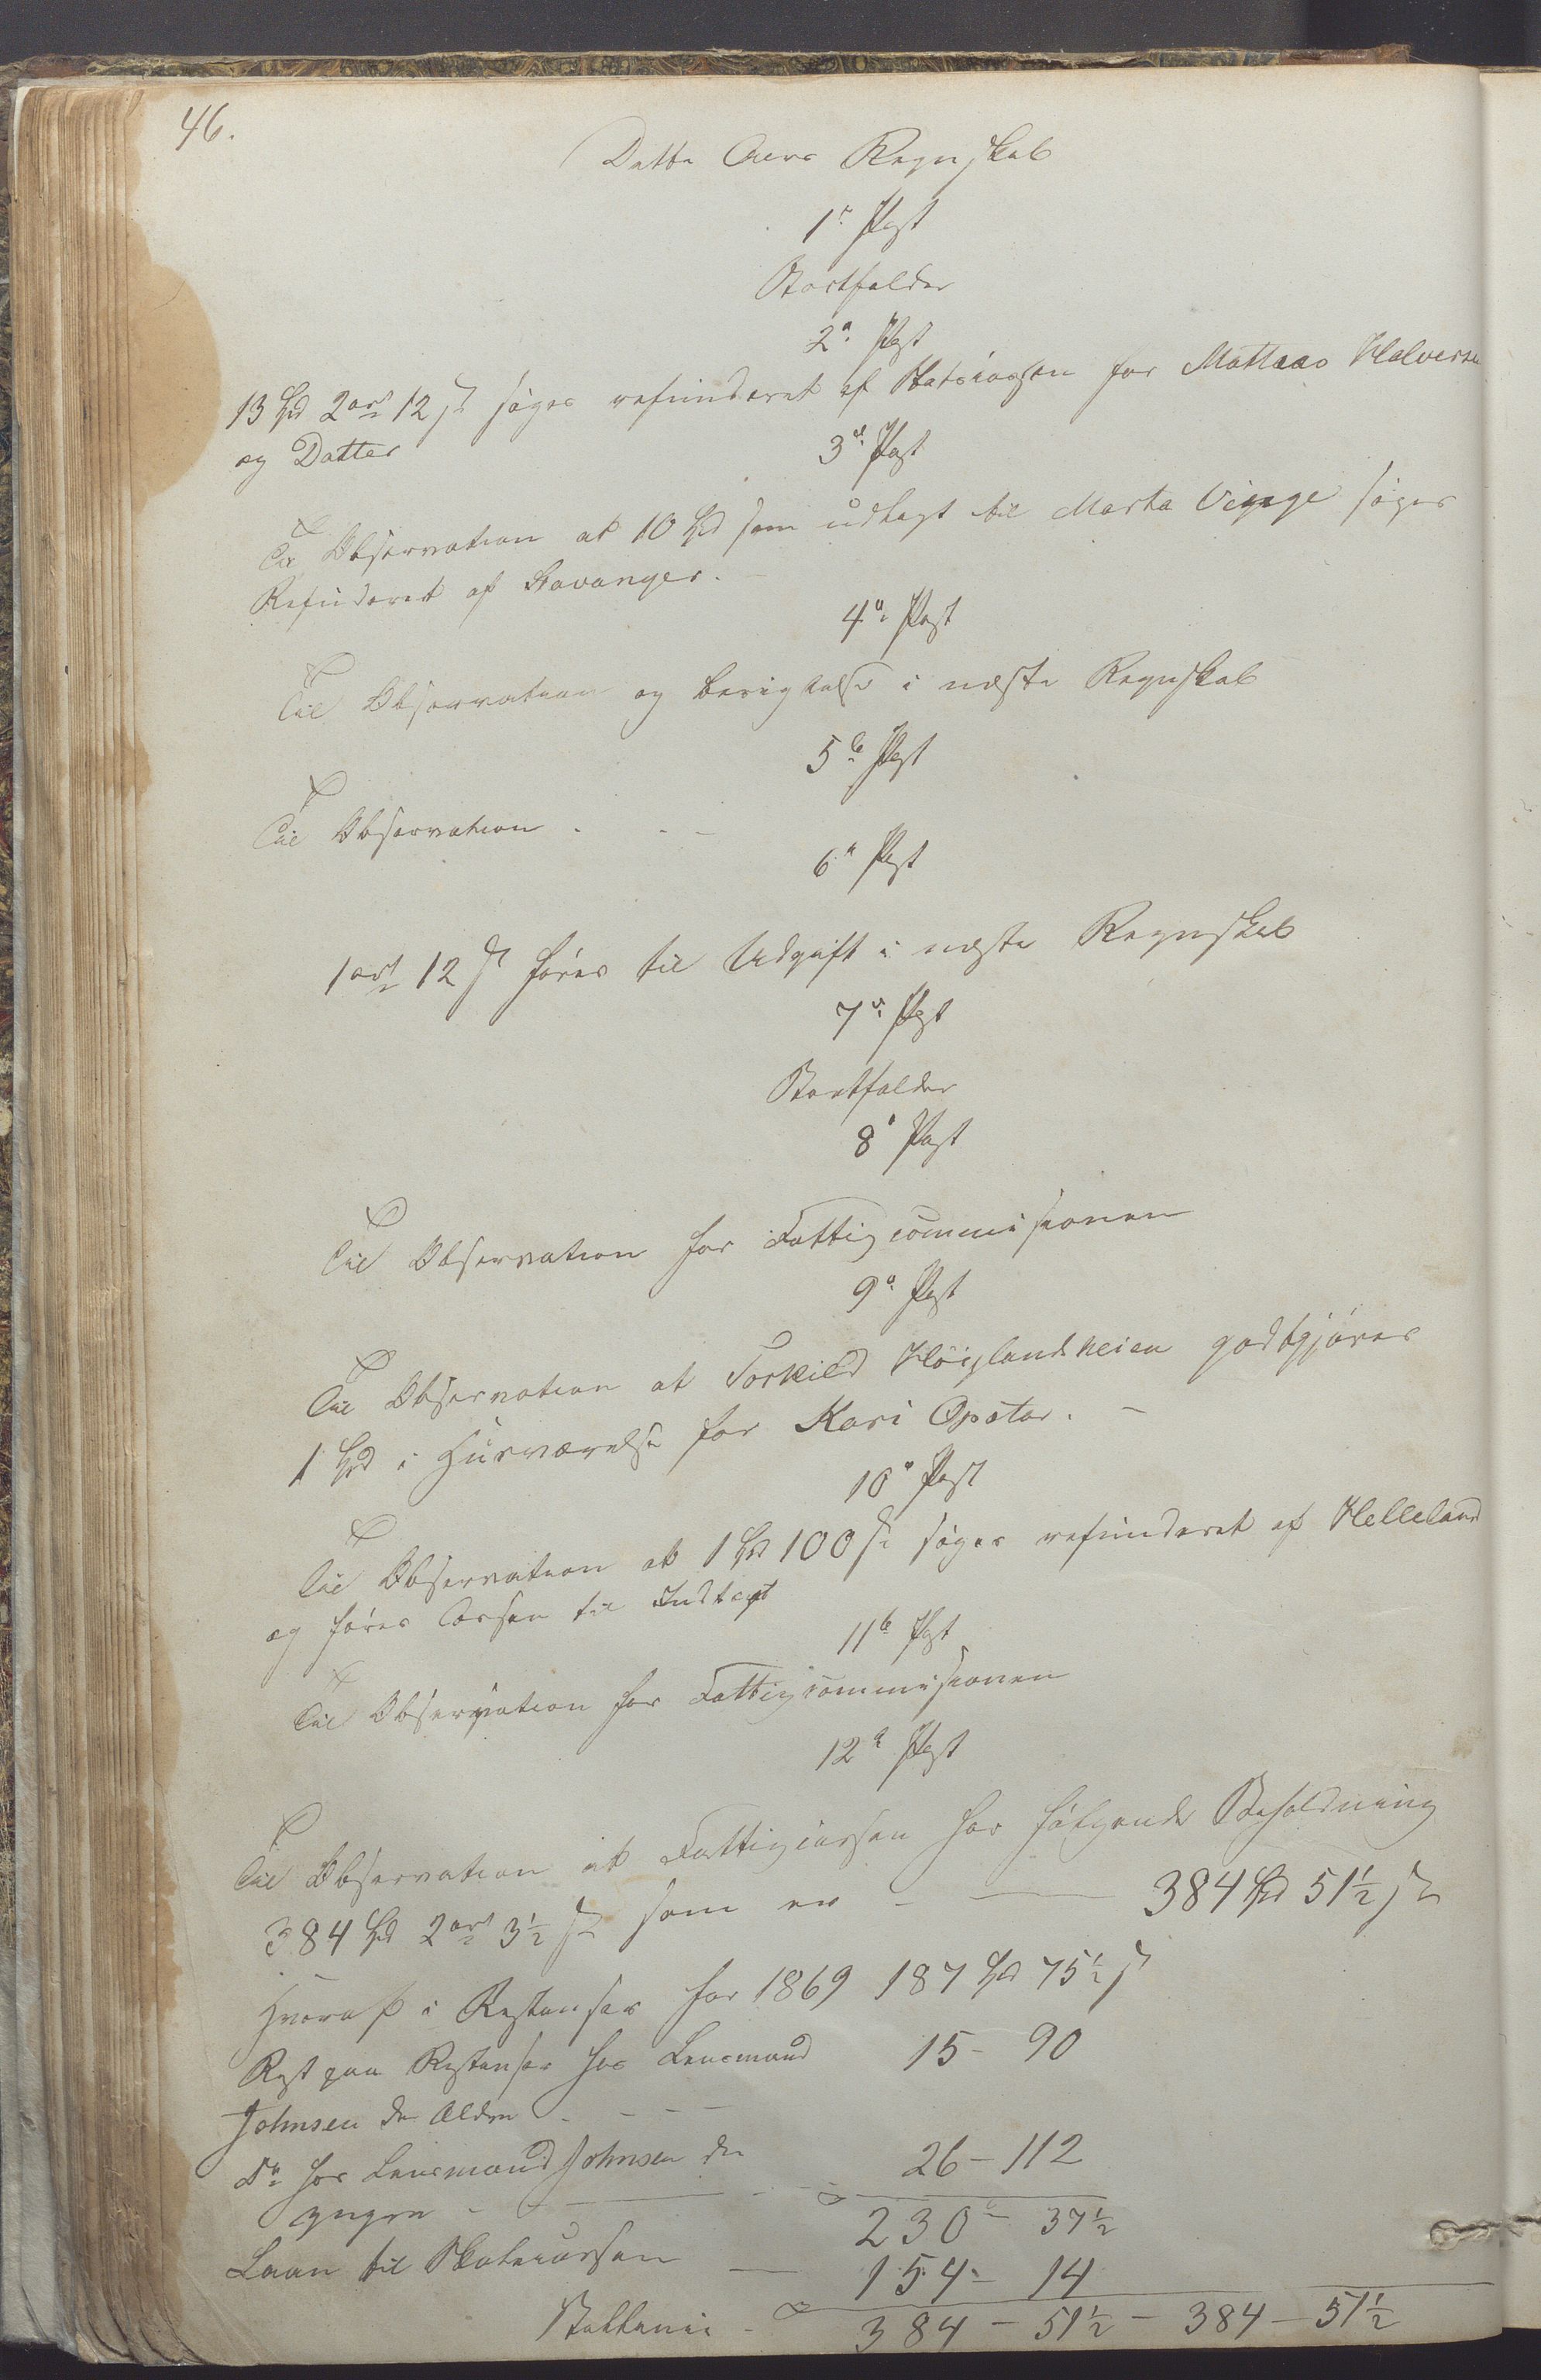 46.
Dette Aars Regnskab
1ste Post
Bortfalder
2den Post
13 Spd 2 ort 12 ß søges refunderet af Statscassen for Mathias Halversen
og Datter
3die Post
Til Observation at 10 Spd som udlagt til Marta Vigge søges
Refunderet af Stavanger.
4de Post
Til Observation og berigtelse i næste Regnskab
5te Post
Til Observation.
6te Post
1 ort 12 ß føres til Udgift i næste Regnskab
7de Post
Bortfalder
8de Post
Til Observation for Fattigcommisionen
9de Post
Til Observation at Torkild Höiglandsheien godtgjøres
1 Spd i Husværelse for Kari Opstar.
10de Post
Til Observation at 1 Spd 100 ß søges refunderet af Helleland
og føres Cassen til Indtægt
11te Post
Til Observation for Fattigcommisionen
12te Post
Til Observation at Fattigcassen har følgende Beholdning
384 Spd 2 ort 3½ ß som er - 384 Spd 51½ ß
Hvoraf i Restanser for 1869 187 Spd 75½ ß
Rest paa Restanser hos Lensmand 15 - 90
Johnsen den Ældre
Do hos Lensmand Johnsen den 26 - 112
yngre
230 - 37½
Laan til Skolecassen 154 - 14
Ballance - 384 - 51½ - 384 - 51½